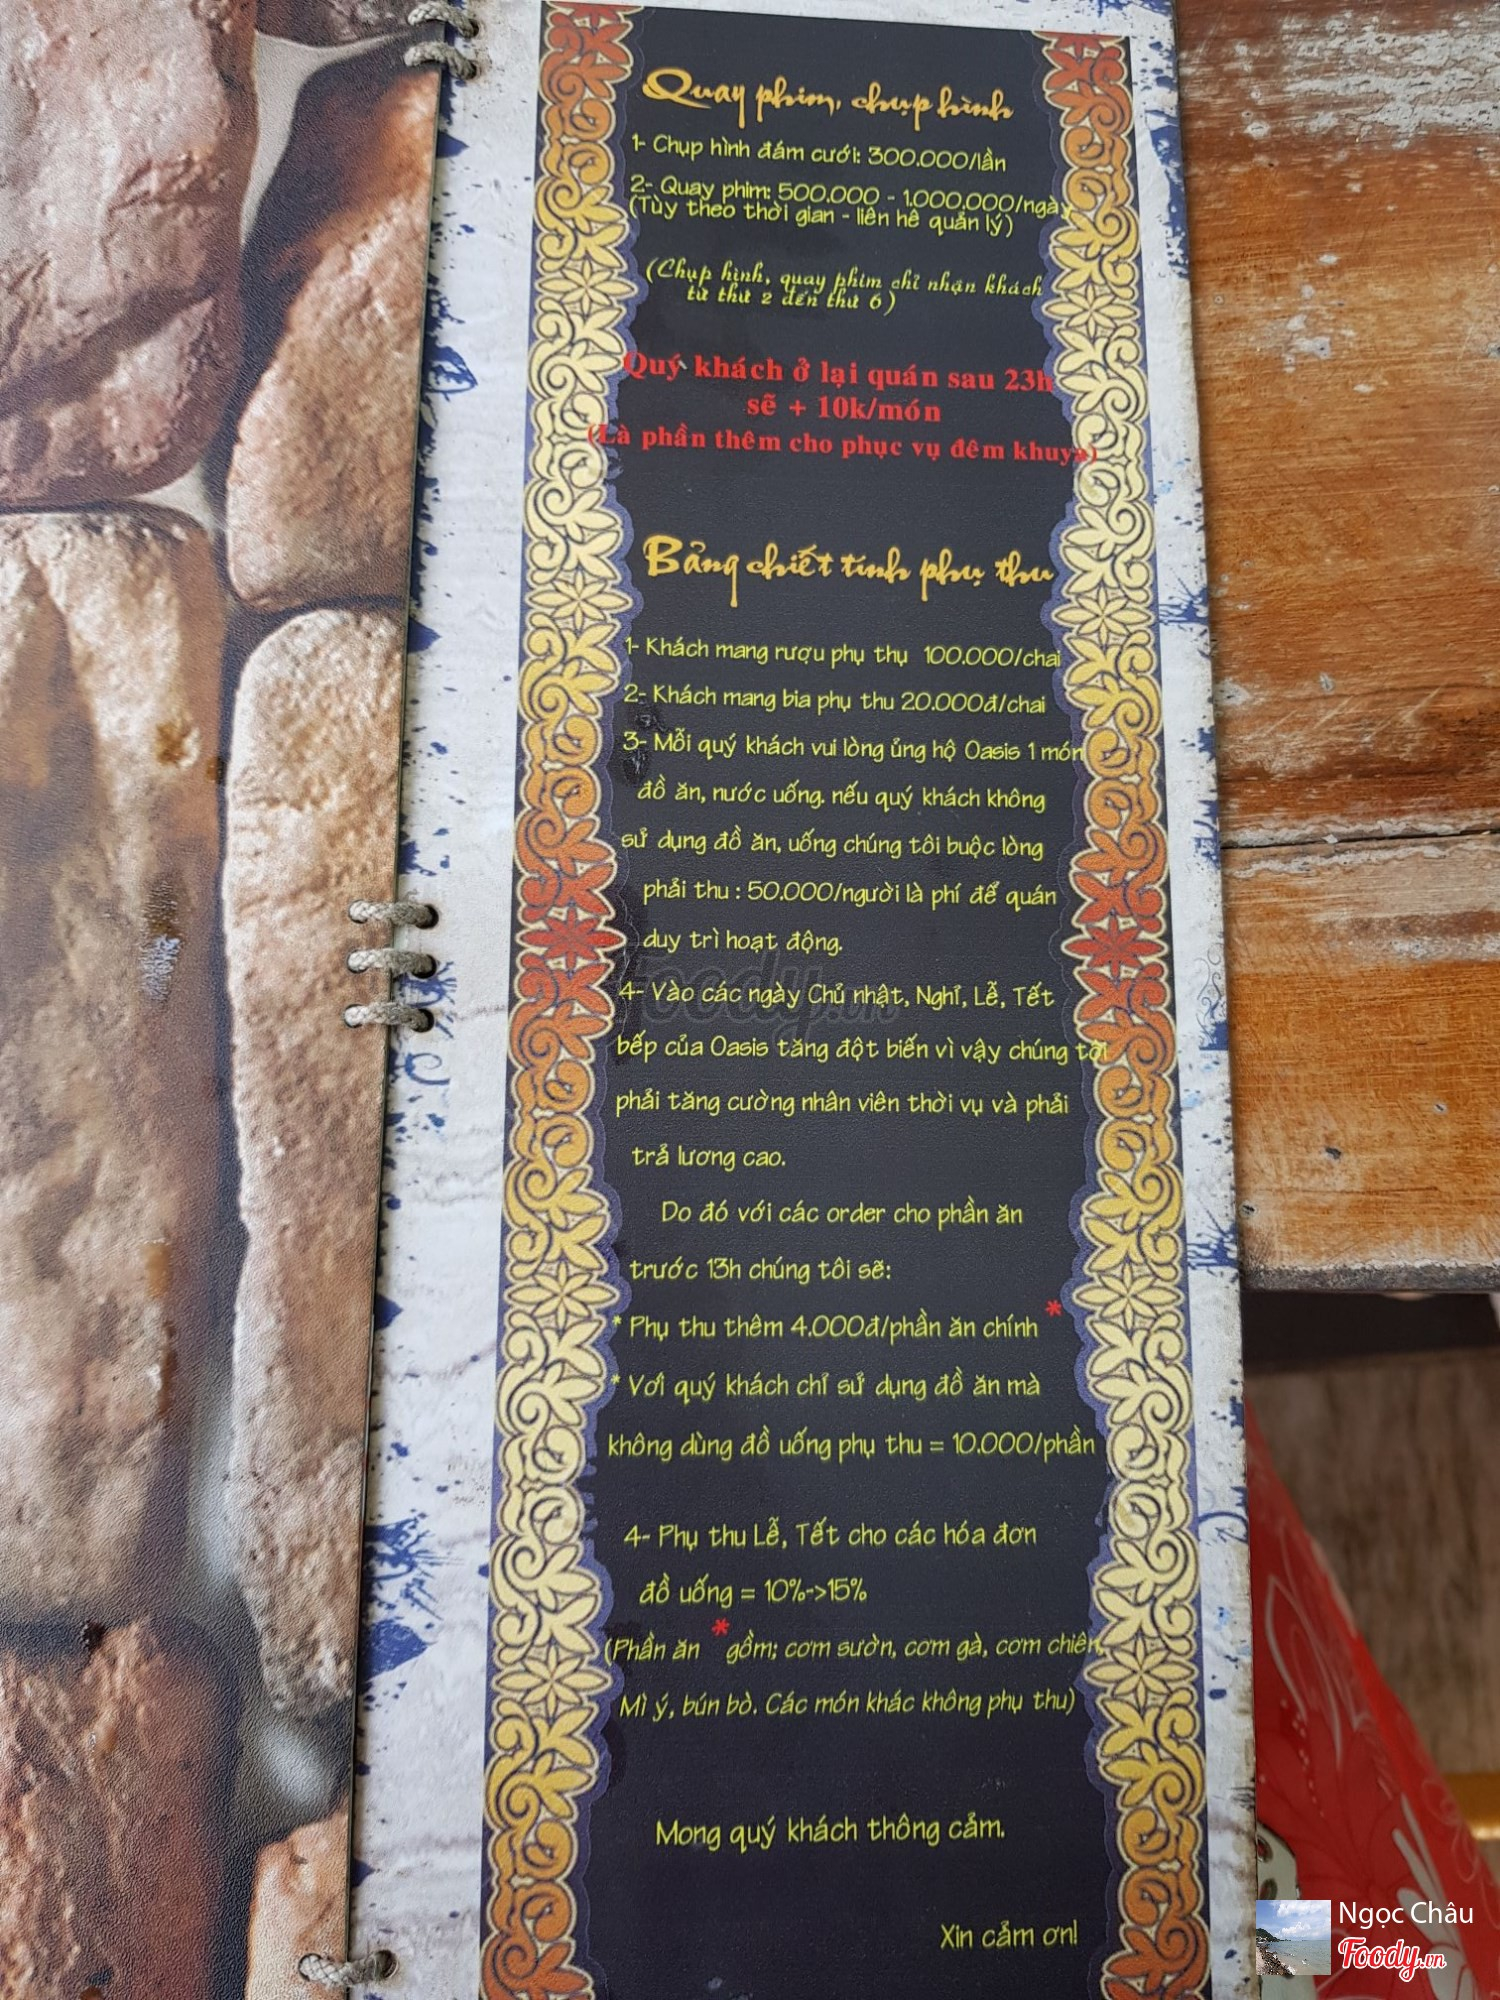 Quay phim, chụp hình
1- Chụp hình đám cưới: 300.000/lần
2- Quay phim: 500.000 - 1.000.000/ngày
(Tùy theo thời gian - liên hê quản lý)
(Chụp hình, quay phim chỉ nhận khách
từ thứ 2 đến thứ 6)
Quý khách ở lại quán sau 23h
sẽ + 10k/món
(Là phần thêm cho phục vụ đêm khuya)
Bảng chiết tính phụ thu
1- Khách mang rượu phụ thụ 100.000/chai
2- Khách mang bia phụ thu 20.000đ/chai
3- Mỗi quý khách vui lòng ủng hộ Oasis 1 món
đồ ăn, nước uống. nếu quý khách không
sử dụng đồ ăn, uống chúng tôi buộc lòng
phải thu : 50.000/người là phí để quán
duy trì hoạt động.
Foody.vn
4- Vào các ngày Chủ nhật, Nghỉ, Lễ, Tết
bếp của Oasis tăng đột biến vì vậy chúng tôi
phải tăng cường nhân viên thời vụ và phải
trả lương cao.
Do đó với các order cho phần ăn
trước 13h chúng tôi sẽ:
* Phụ thu thêm 4.000đ/phần ăn chính *
* Với quý khách chỉ sử dụng đồ ăn mà
không dùng đồ uống phụ thu = 10.000/phần
4- Phụ thu Lễ, Tết cho các hóa đơn
đồ uống = 10%->15%
(Phần ăn * gồm; cơm sườn, cơm gà, cơm chiên,
Mì ý, bún bò. Các món khác không phụ thu)
Mong quý khách thông cảm.
Xin cảm ơn!
Ngọc Châu
Foody.vn